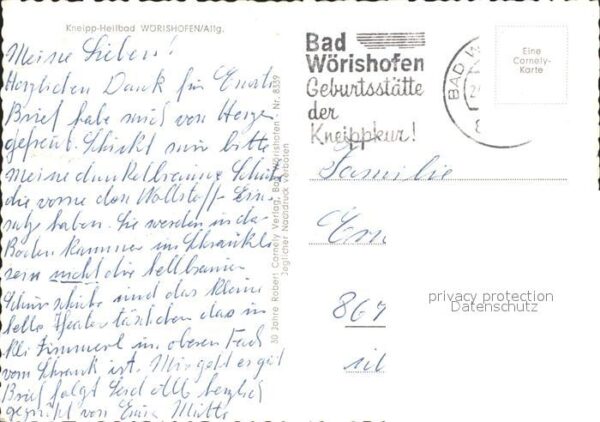 Kneipp-Heilbad WÖRISHOFEN/Allg.
Meine Lieben!
Herzlichen Dank für Euren
Brief habe mich von Herzen
gefreut. Schickt mir bitte
meine dunkelbraune Schuhe
die vorne den Wollstoff-Ein-
satze haben. Sie werden in da
Boden Kammer im Schränkle
sein nicht die hellbraune
Schürschuhe und das kleine
helle Theater täschchen das in
klei Zimmerl im oberen Fach
vom Schrank ist. Mir geht es gut
Brief folgt Seid Alle herzlich
gegrüßt von Eurer Mutter
30 Jahre Robert Cornely Verlag, Bad Wörishofen - Nr. 8339
Jeglicher Nachdruck verboten
Bad
Wörishofen
Geburtsstätte
der
Kneippkur!
BAD W
Eine
Cornely-
Karte
Familie
867
privacy protection
Datenschutz